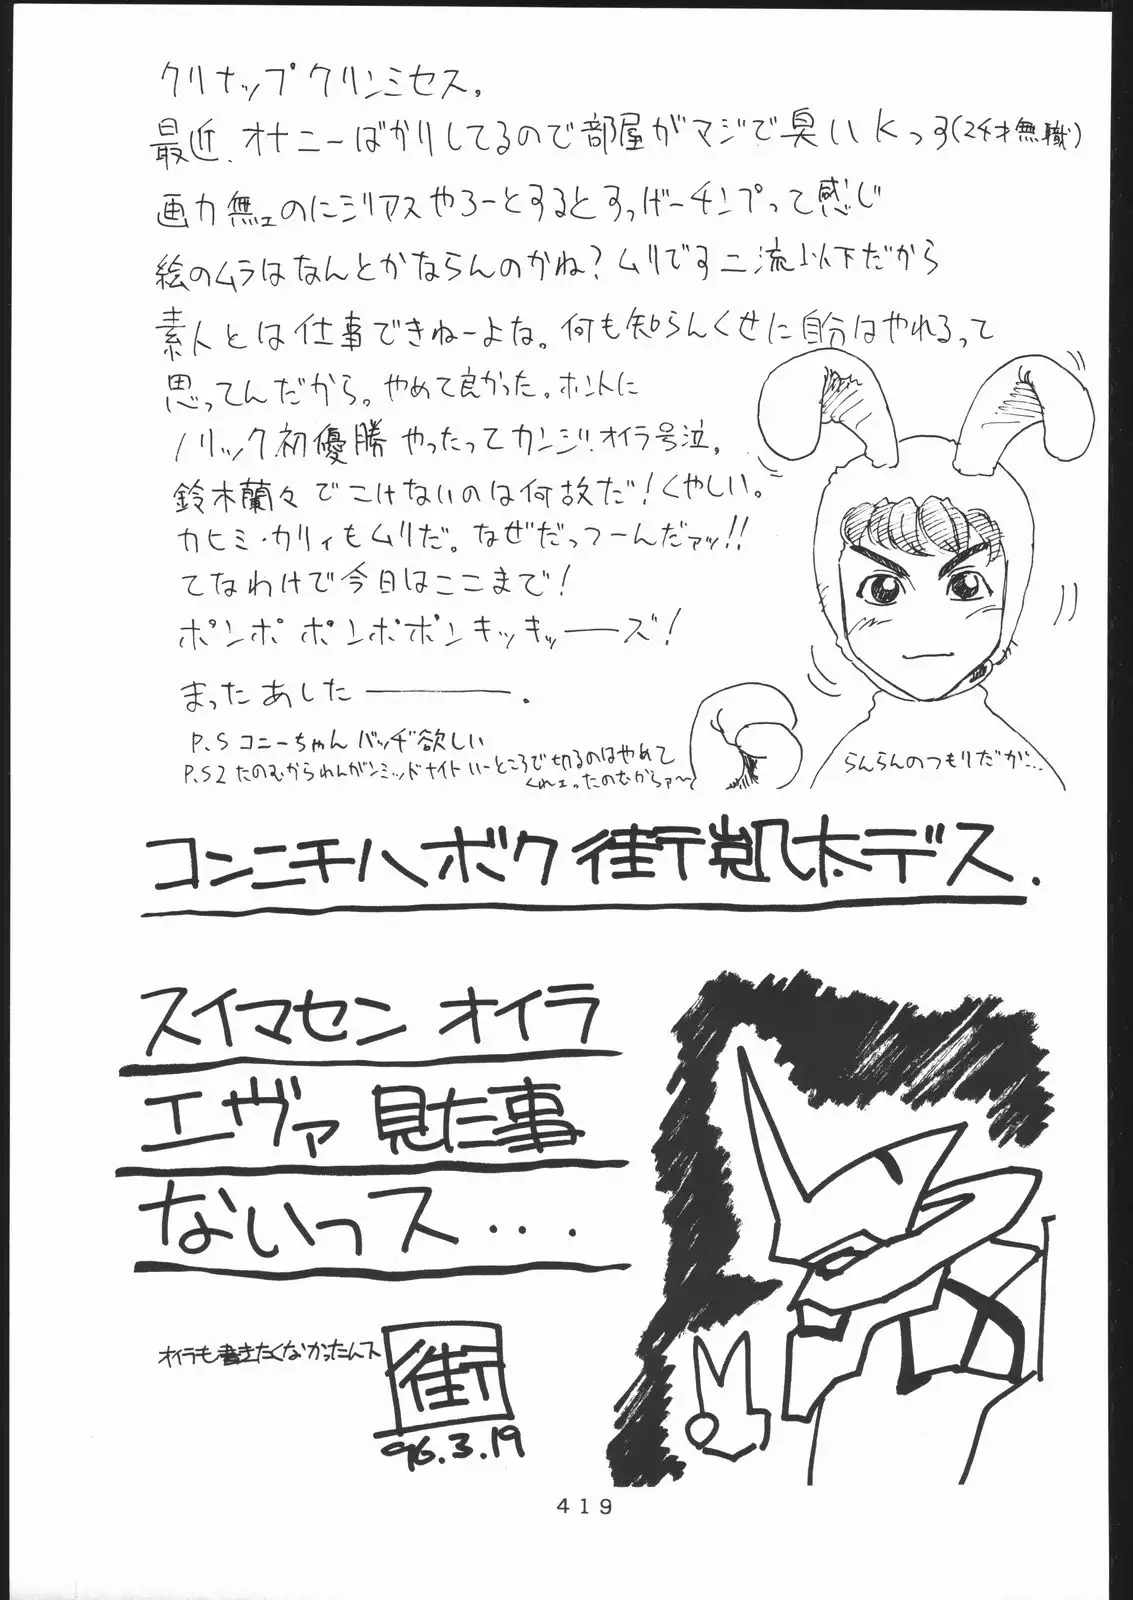 クリナップクリンミセス。
最近、オナニーばかりしてるので部屋がマジで臭いKっす(24才無職)
画力無ェのにジアスやろーとするとすっげーチンプって感じ
絵のムラはなんとかならんのかね?ムリです二流以下だから
素人とは仕事できねーよな。何も知らんくせに自分はやれるって
思ってんだから。やめて良かった。ホントに
ノリック初優勝 やったってカンジ!オイラ号泣。
鈴木蘭々でこけないのは何故だ!くやしい。
カヒミ・カリィもムリだ。なぜだっつーんだァッ!!
てなわけで今日はここまで!
ポンポ ポンポポンキッキッーーズ!
まったあしたーーー.
P.S コニーちゃんバッヂ欲しい
P.S2 たのむからわんがんミッドナイトいーところで切るのはやめて
くれェったのむからァ〜
らんらんのつもりだが…
コンニチハボク街凱太デス.
スイマセン オイラ
エヴァ見た事
ないっス...
オイラも書きたくなかったんス
街
96.3.19
419